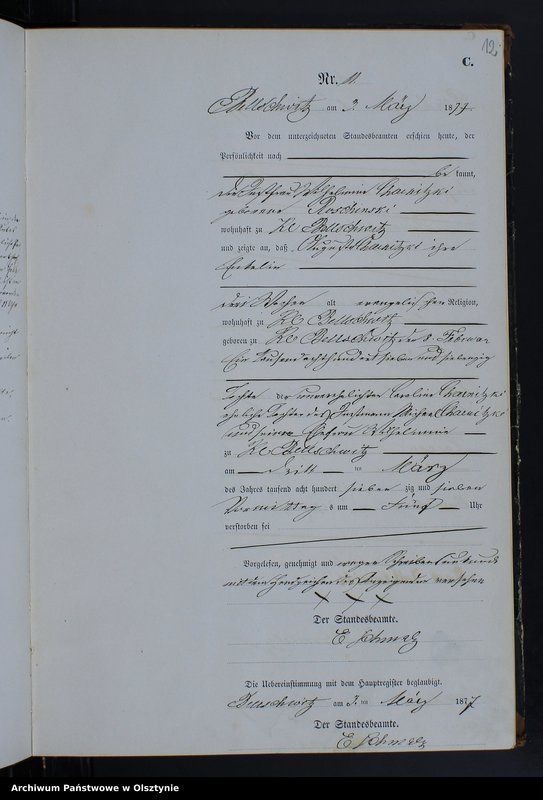 12.
C.
Nr. 11.
Bellschwitz am 3. März 1877
Vor dem unterzeichneten Standesbeamten erschien heute, der
Persönlichkeit nach
be kannt,
die Instfrau Wilhelmine Czarnitzki
geborene
wohnhaft zu Kl Bellschwitz
und zeigte an, daß Auguste Czarnitzki ihre
Enkelin
drei Wochen alt evangelischen Religion,
wohnhaft zu Kl Bellschwitz
geboren zu Kl Bellschwitz den 8. Februar
Ein tausend achthundert sieben und siebenzig
Tochter der unverehelichten Caroline Czarnitzki
eheliche Tochter des Instmann Michael Czarnitzki
und seiner Ehefrau Wilhelmine
zu Kl Bellschwitz
am dritt ten März
des Jahres tausend acht hundert sieben zig und sieben
Vormittags um fünf Uhr
verstorben sei
Vorgelesen, genehmigt und wegen Schreibensunkunde
mit dem Handzeichen des Anzeigenden versehen
× × ×
Der Standesbeamte.
E Schmalz
Die Uebereinstimmung mit dem Hauptregister beglaubigt.
Bellschwitz am 3. ten März 1877
Der Standesbeamte.
E Schmalz
Archiwum Państwowe w Olsztynie